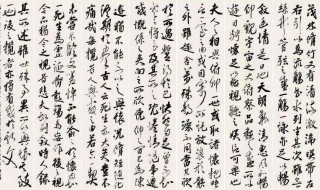 茂林修竹又有清流激湍映帶
左右引以為流觴曲水列坐其次雖無
絲竹管弦之盛一觴一詠亦足以暢
敘幽情是日也天朗氣清惠風和
暢仰觀宇宙之大俯察品類之盛所以
遊目騁懷足以極視聽之娛信可樂也
夫人之相與俯仰一世或取諸懷抱悟
言一室之內或因寄所託放浪形骸
之外雖趣舍萬殊靜躁不同當其欣
於所遇暫得於己快然自足
將至及其所之既倦情隨事遷
感慨係之矣向之所欣俛仰之間
迹猶不能不以之興懷況修短隨化
終期於盡古人云死生亦大矣豈不
痛哉每覽昔人興感之由若合一契
未嘗不臨文嗟悼不能喻之於懷固知
一死生為虛誕齊彭殤為妄作後之視
今亦猶今之視昔悲夫故列敘時人錄
其所述雖世殊事異所以興懷其致一
也後之覽者亦將有感於斯文